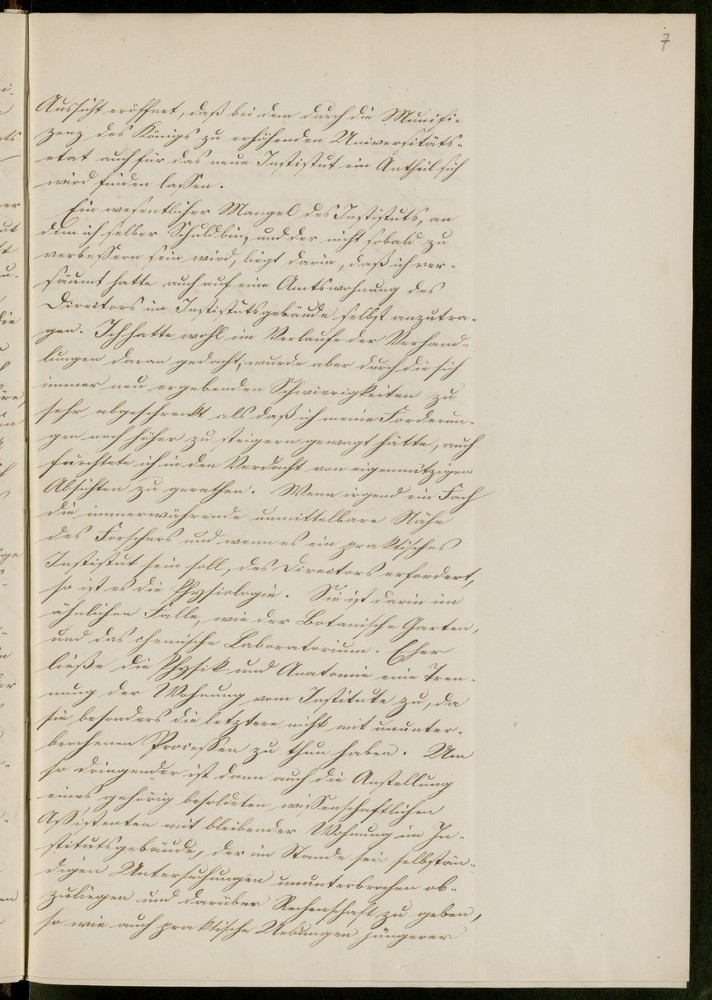 7
Aussicht eröffnet, daß bei dem durch die Munifi-
zenz des Königs zu erhöhenden Universitäts-
etat auch für das neue Institut ein Antheil sich
wird finden lassen.
Ein wesentlicher Mangel des Instituts, an
dem ich selber Schuld bin, und der nicht sobald zu
verbessern sein wird, liegt darin, daß ich ver-
säumt hatte auch auf eine Amtswohnung des
Directors im Institutsgebäude selbst anzutra-
gen. Ich hatte wohl im Verlaufe der Verhand-
lungen daran gedacht, wurde aber durch die sich
immer neu ergebenden Schwierigkeiten zu
sehr abgeschreckt als daß ich meine Forderun-
gen noch höher zu steigern gewagt hätte, auch
fürchtete ich in den Verdacht von eigennützigen
Absichten zu gerathen. Wenn irgend ein Fach
die immerwährende unmittelbare Nähe
des Forschers und wenn es ein praktisches
Institut sein soll, des Directors erfordert,
so ist es die Physiologie. Sie ist darin im
ähnlichen Falle, wie der Botanische Garten,
und das chemische Laboratorium. Eher
ließe die Physik und Anatomie eine Tren-
nung der Wohnung vom Institute zu, da
sie besonders die letztere nicht mit ununter-
brochenen Processen zu thun haben. Um
so dringender ist dann auch die Anstellung
eines gehörig besoldeten wissenschaftlichen
Assistenten mit bleibender Wohnung im In-
stitutsgebäude, der im Stande sei selbstän-
digen Untersuchungen ununterbrochen ob-
zuliegen und darüber Rechenschaft zu geben,
so wie auch praktische Uebungen jüngerer